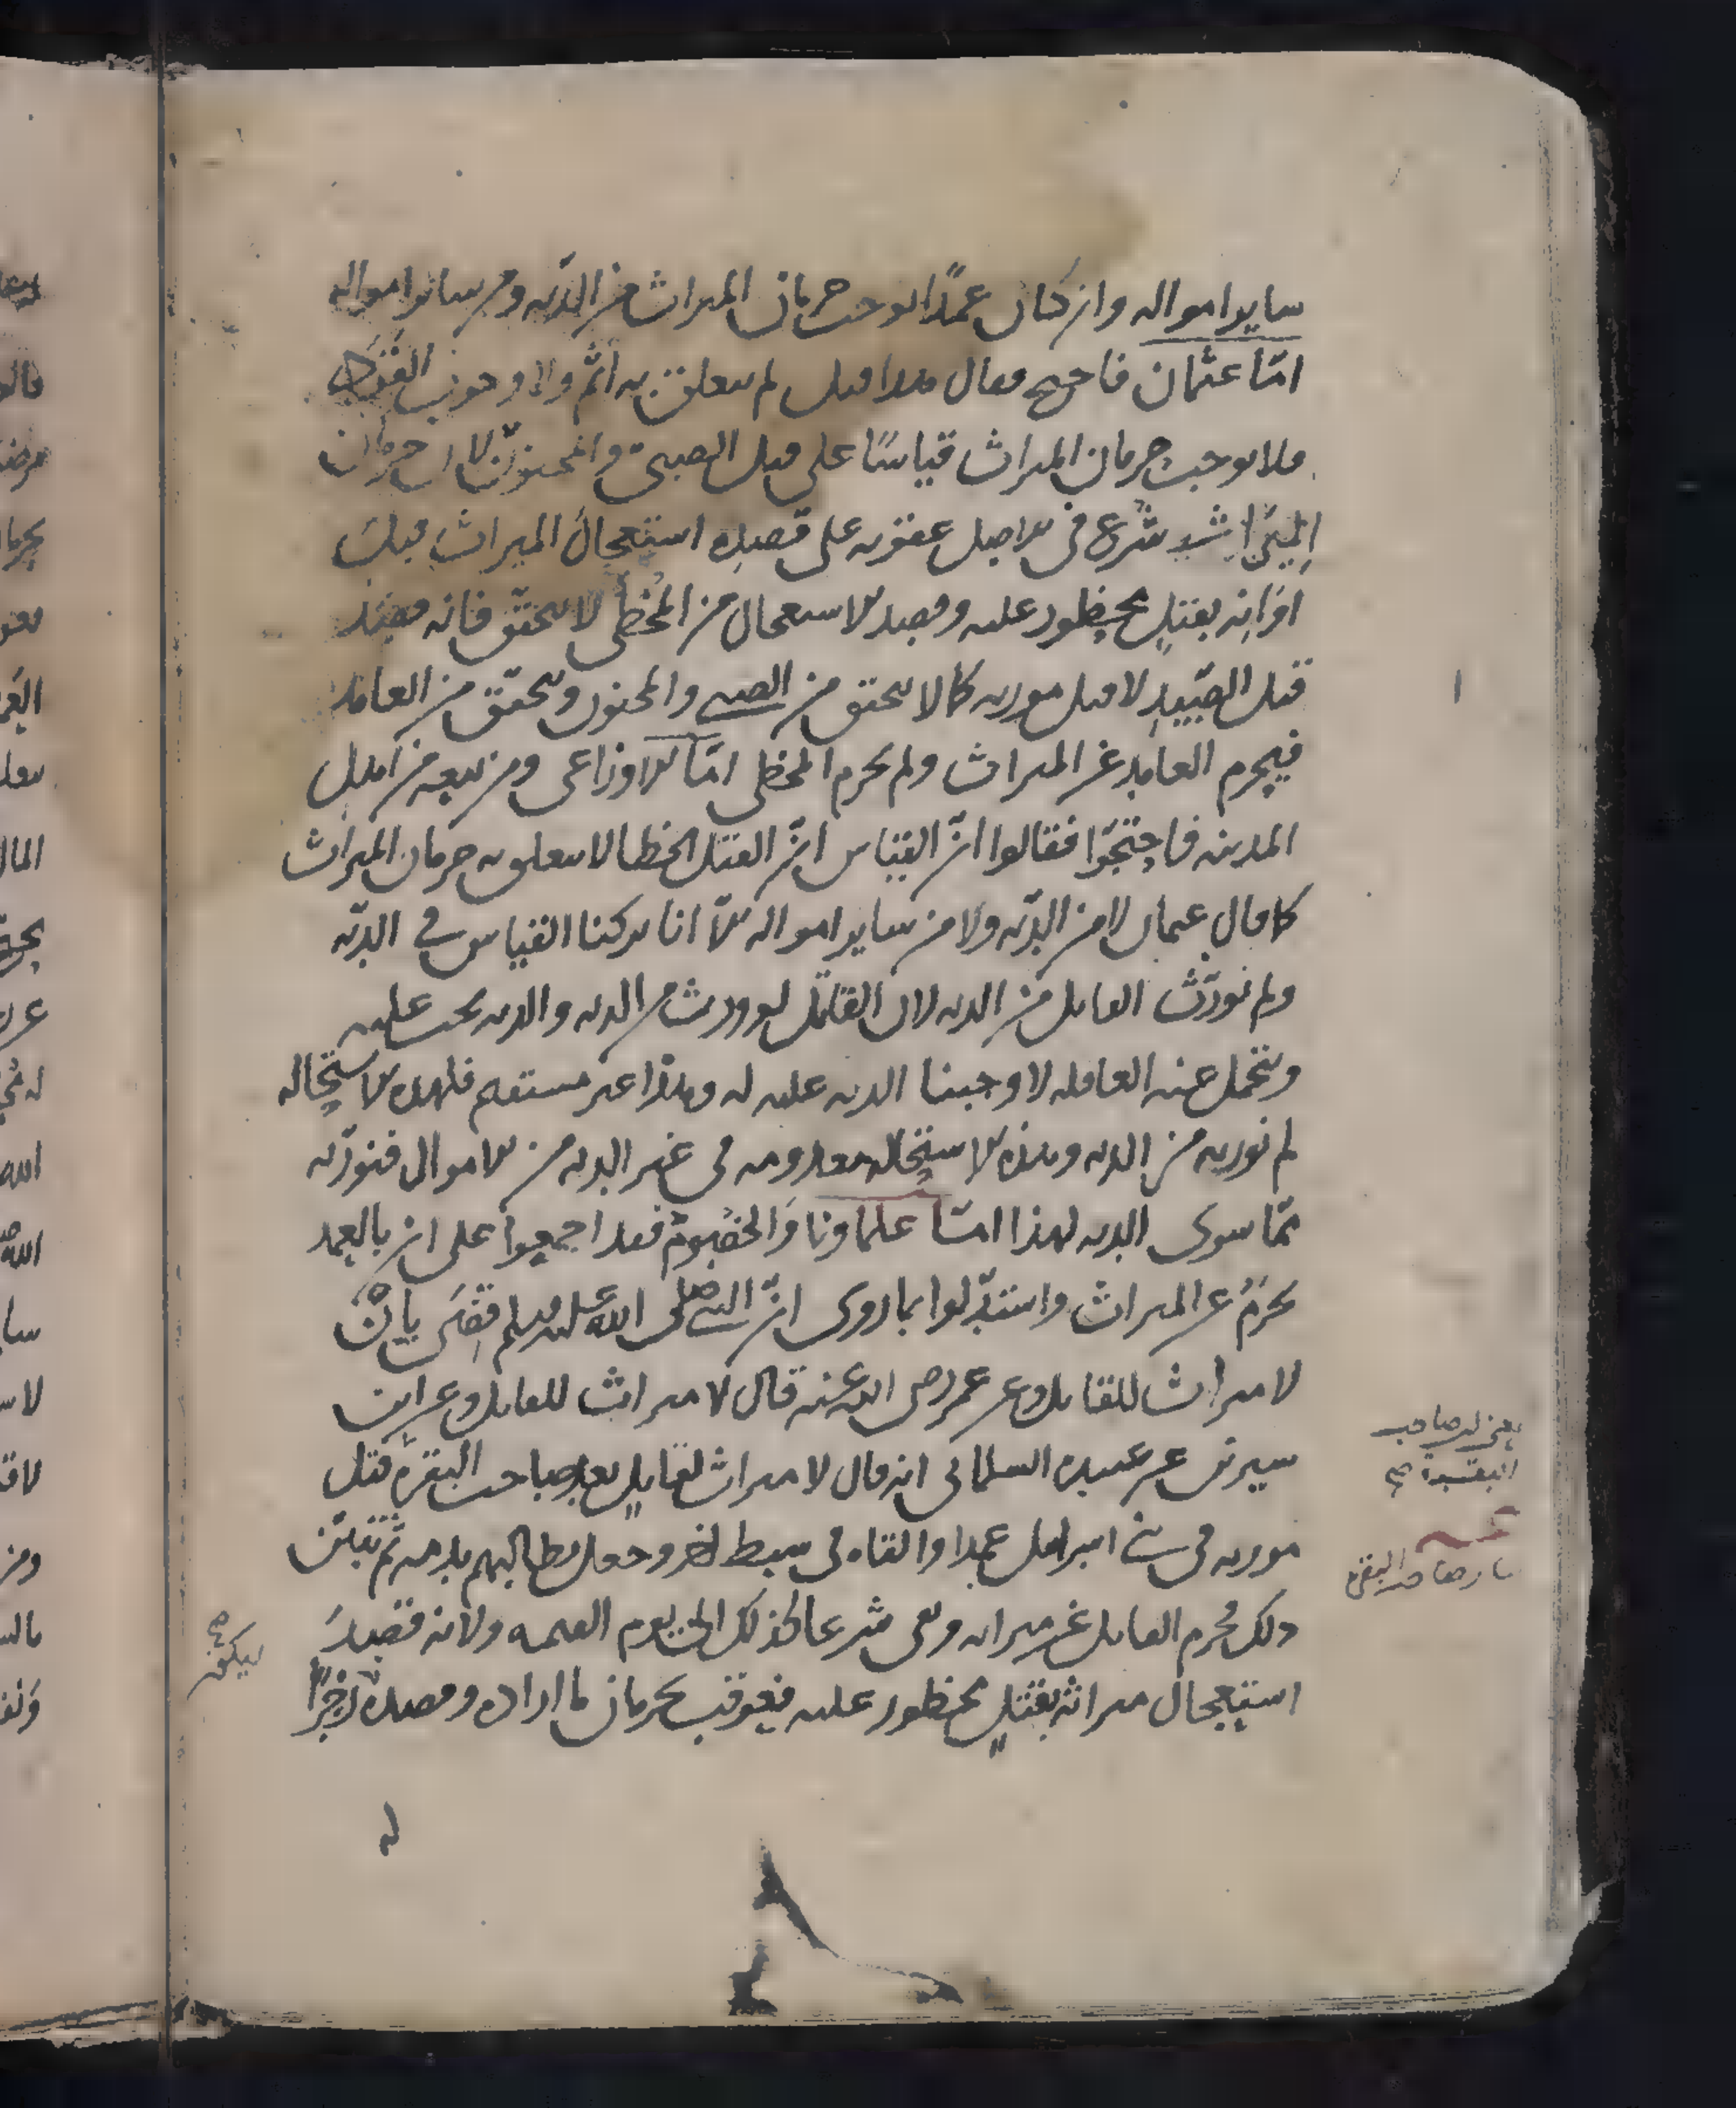 ساير امواله وان كان عمدًا يوجب حرمان الميراث من الديّه ومن ساير امواله
امّا عثمان فاحتج فقال هذا قتل لم يتعلق به اثم ولا وجوب القود
فلا يوجب حرمان الميراث قياسًا على قتل الصبيّ والمجنون لان حرمان
الميراث شرع في الاصل عقوبه على قصده استعجال الميراث قبل
اوانه بقتل محظور عليه وقصد الاستعجال من المخطي لا يتحقّق فانه قصد
قتل الصّيد لا قتل مورثه كما لا يتحقق من الصبي والمجنون ويتحقّق من العامد
فيحرم العامد عن الميراث ولم يحرم المخطي امّا الاوزاعي ومن تبعه من اهل
المدينه فاحتجّوا فقالوا انّ القياس انّ القتل الخطا لا يتعلق به حرمان الميراث
كما قال عثمان لا من الديّه ولا من ساير امواله الّا انا تركنا القياس في الديّه
ولم نورّث القاتل من الديه لان القاتل لو ورث من الديه والديه تجب عليه
ويتحمل عنه العاقله لاوجبنا الديه عليه له وهذا غير مستقيم فلهذه الاستحاله
لم نورثه من الديه وهذه الاستحاله معدومه في غير الديه من الاموال فنورّثه
ممّا سوى الديه لهذا امّا علماونا والخصوم فقد اجمعوا على ان بالعمد
يحرَم عن الميراث واستدلّوا بما روى انّ النبي صلى الله عليه وسلم قضى بان
لا ميراث للقاتل وعن عمر رضي الله عنه قال لا ميراث للقاتل وعن ابن
سيرين عن عبيده السلماني انه قال لا ميراث لقاتل بعد صاحب البقرة قتل
مورثه في بني اسرايل عمدا والقاه في سبط اخر وجعل يطالبهم بدمه ثم تبيّن
ذلك فحُرم القاتل عن ميراثه وبقي شرعا كذلك الى يوم القيمه ولانه قصد
استعجال ميراثه بقتلٍ محظور عليه فيعوقب بحرمان ما اراده وقصده زجرًا
له
يعني لصاحب
البقرة صح
صاحب البقرة
ليكون
صح